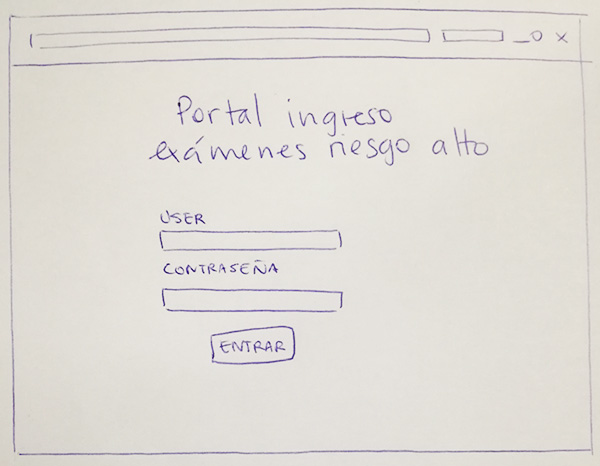 Portal ingreso
exámenes riesgo alto
USER
CONTRASEÑA
ENTRAR